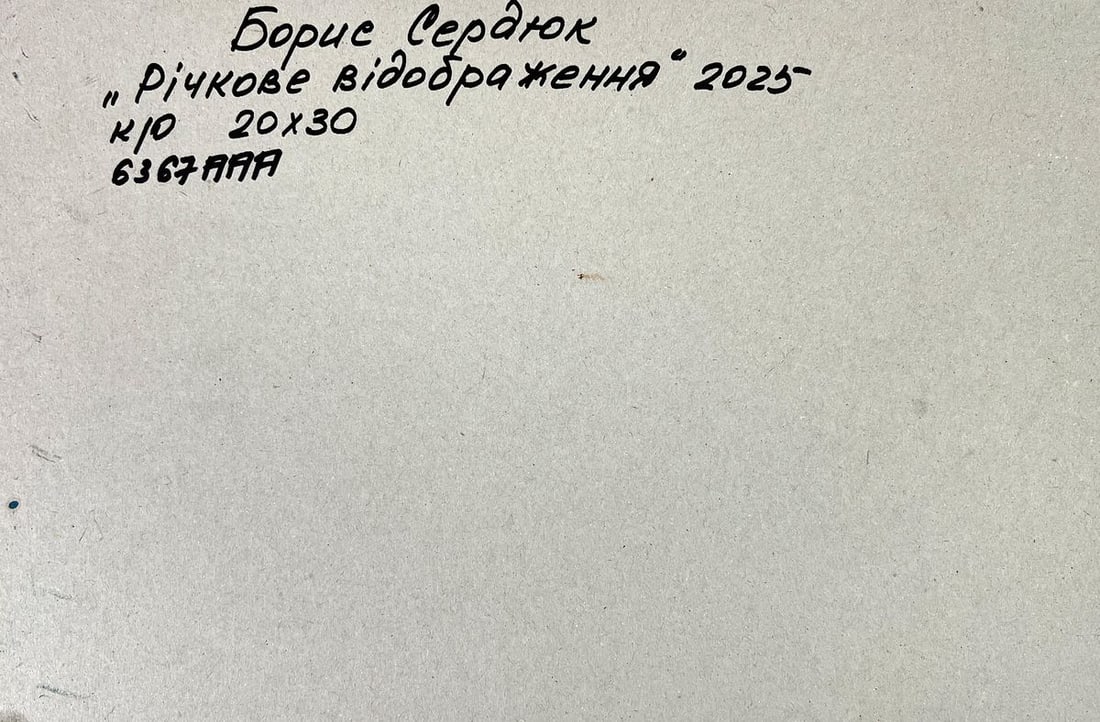 Борис Сердюк
„Річкове відображення“ 2025
к/о 20х30
6367ААА